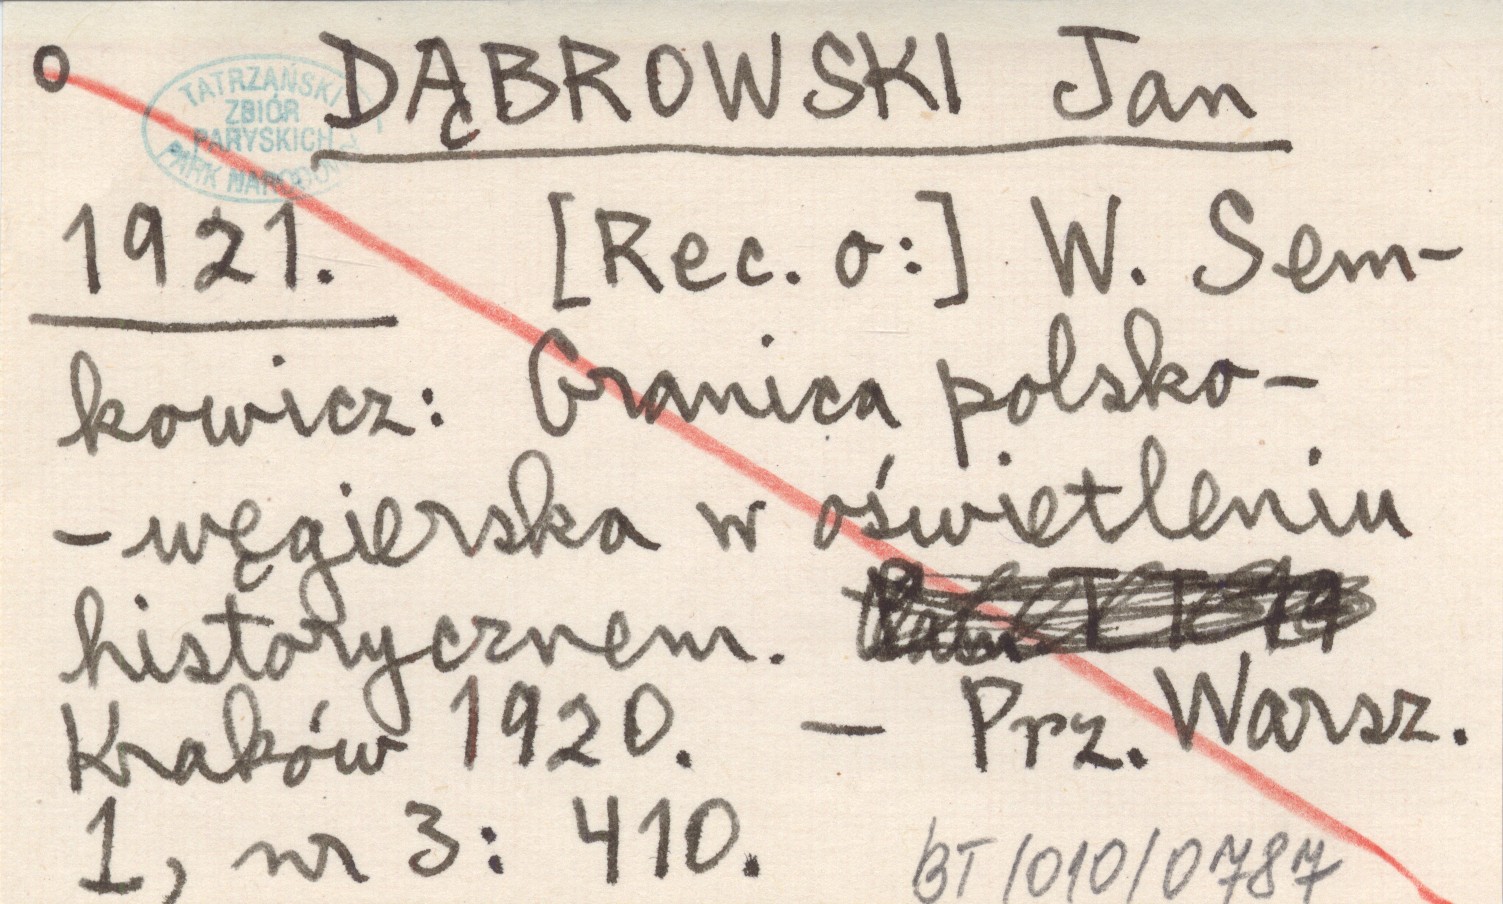 O DĄBROWSKI Jan
TATRZAŃSKI
ZBIÓR
PARYSKICH
PARK NARODOWY
1921. [Rec. o:] W. Sem-
kowicz: Granica polsko-
-węgierska w oświetleniu
historycznem.
Kraków 1920. — Prz. Warsz.
1, nr 3: 410.
BT/010/0787